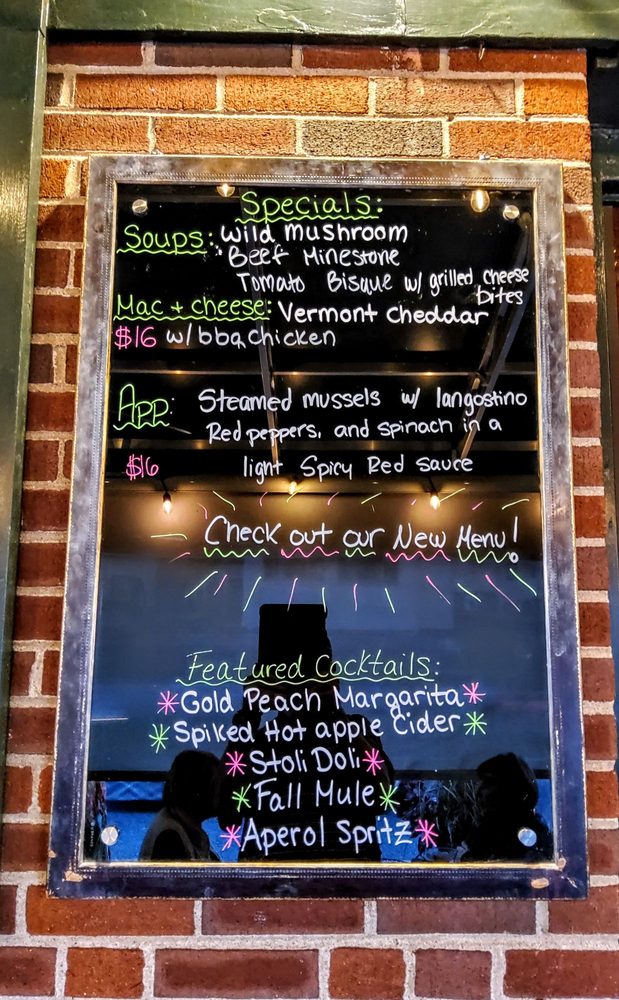 Specials:
Soups: Wild mushroom
Beef Minestone
Tomato Bisque w/ grilled cheese
bites
Mac + cheese: Vermont cheddar
$16 w/ bbq chicken
App: Steamed mussels w/ langostino
Red peppers, and spinach in a
$16 light Spicy Red sauce
Check out our New Menu!
Featured Cocktails:
*Gold Peach Margarita*
*Spiked Hot apple Cider*
*Stoli Doli*
*Fall Mule*
*Aperol Spritz*